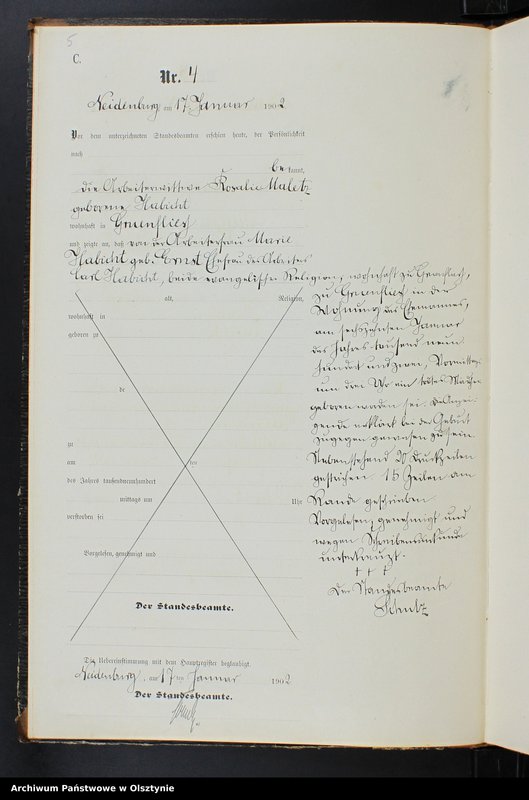 5
C.
Nr. 4
Neidenburg am 17. Januar 1902
Vor dem unterzeichneten Standesbeamten erschien heute, der Persönlichkeit
nach
bekannt,
die Arbeiterwittwe Rosalie Maletz
geborene Habicht
wohnhaft in Gruenfließ
und zeigte an, daß von der Arbeiterfrau Marie
Habicht geb. Ernst Ehefrau des Arbeiters
Carl Habicht, beide evangelischer Religion, wohnhaft zu Gruenfließ,
alt, Religion,
wohnhaft in
geboren zu
de
zu
am ten
des Jahres tausendneunhundert
mittags um Uhr
verstorben sei
Vorgelesen, genehmigt und
Der Standesbeamte.
zu Gruenfließ in der
Wohnung des Ehemannes,
am sechszehnten Januar
des Jahres tausend neun
hundert und zwei, Vormittags
um drei Uhr ein todtes Mädchen
geboren worden sei. Die Anzei-
gende erklärt bei der Geburt
zugegen gewesen zu sein.
Nebenstehend Druckzeilen
gestrichen 15 Zeilen am
Rande geschrieben
Vorgelesen, genehmigt und
wegen Schreibensunkunde
unterkreuzt.
+ + +
Der Standesbeamte
Schulz
Die Uebereinstimmung mit dem Hauptregister beglaubigt.
Neidenburg, am 17ten Januar 1902
Der Standesbeamte.
Schulz
Archiwum Państwowe w Olsztynie